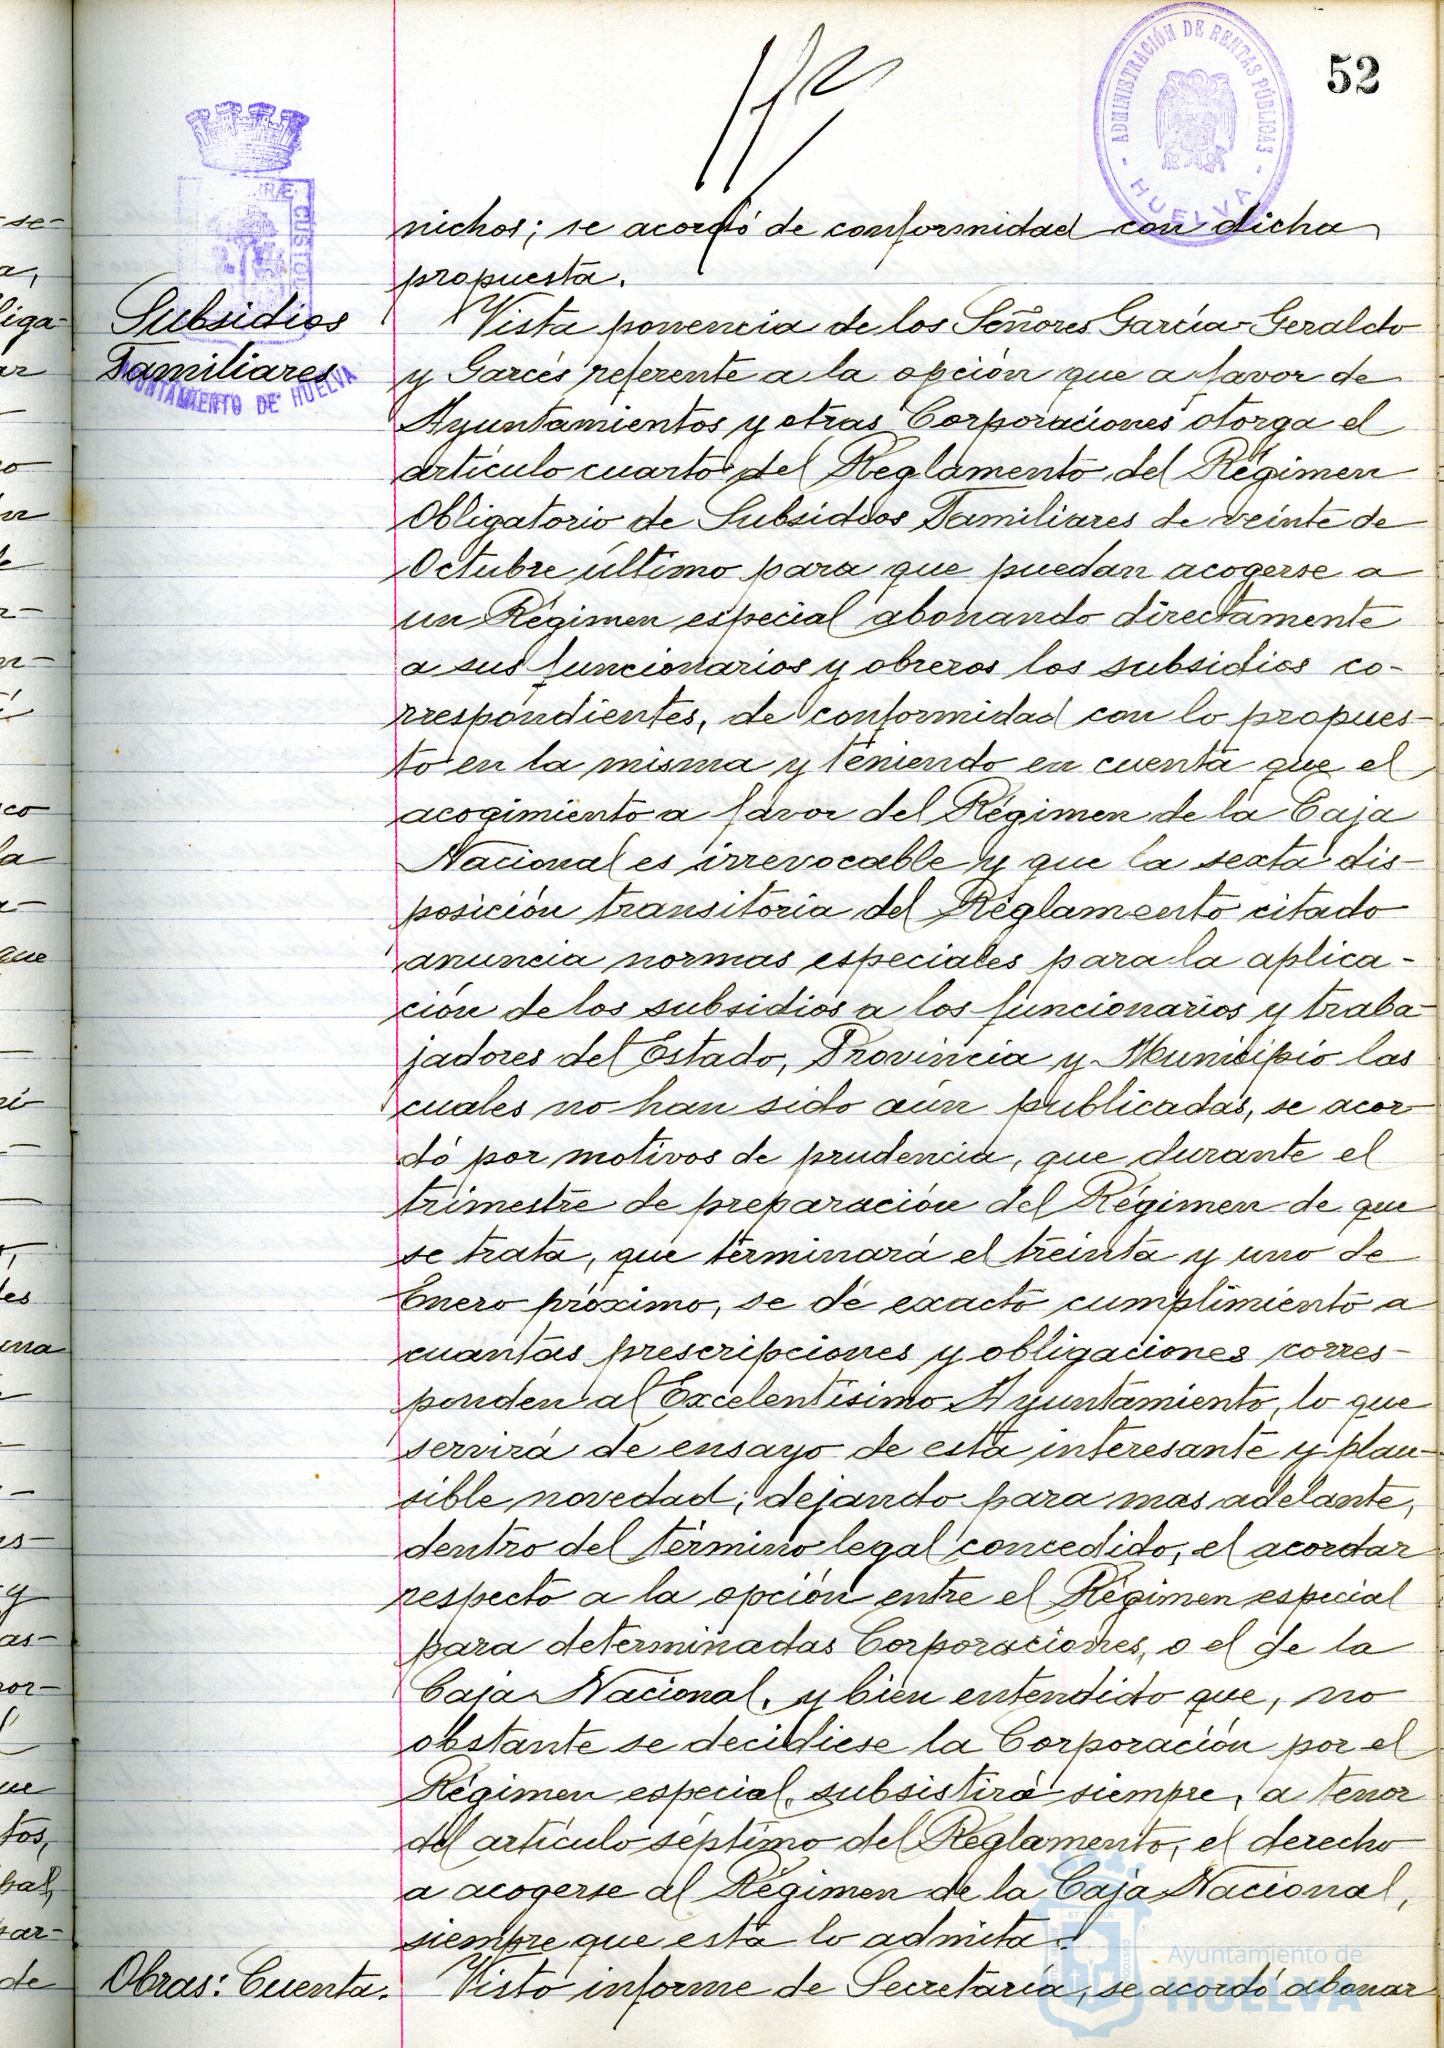 52
ADMINISTRACIÓN DE RENTAS PÚBLICAS
HUELVA
CUSTOD
AYUNTAMIENTO DE HUELVA
nichos; se acordó de conformidad con dicha
propuesta.
Subsidios
Familiares
Vista ponencia de los Señores García-Geraldo
y Garcés referente a la opción que a favor de
Ayuntamientos y otras Corporaciones otorga el
artículo cuarto del Reglamento del Régimen
Obligatorio de Subsidios Familiares de veinte de
Octubre último para que puedan acogerse a
un Régimen especial abonando directamente
a sus funcionarios y obreros los subsidios co-
rrespondientes, de conformidad con lo propues-
to en la misma y teniendo en cuenta que el
acogimiento a favor del Régimen de la Caja
Nacional es irrevocable y que la sexta dis-
posición transitoria del Reglamento citado
anuncia normas especiales para la aplica-
ción de los subsidios a los funcionarios y traba-
jadores del Estado, Provincia y Municipio las
cuales no han sido aún publicadas, se acor-
dó por motivos de prudencia, que durante el
trimestre de preparación del Régimen de que
se trata, que terminará el treinta y uno de
Enero próximo, se dé exacto cumplimiento a
cuantas prescripciones y obligaciones corres-
ponden al Excelentísimo Ayuntamiento, lo que
servirá de ensayo de esta interesante y plau-
sible novedad; dejando para mas adelante,
dentro del término legal concedido, el acordar
respecto a la opción entre el Régimen especial
para determinadas Corporaciones, o el de la
Caja Nacional, y bien entendido que, no
obstante se decidiese la Corporación por el
Régimen especial, subsistirá siempre, a tenor
del artículo séptimo del Reglamento, el derecho
a acogerse al Régimen de la Caja Nacional,
siempre que esta lo admita.
Obras: Cuenta.
Visto informe de Secretaría, se acordó abonar
Ayuntamiento de
HUELVA